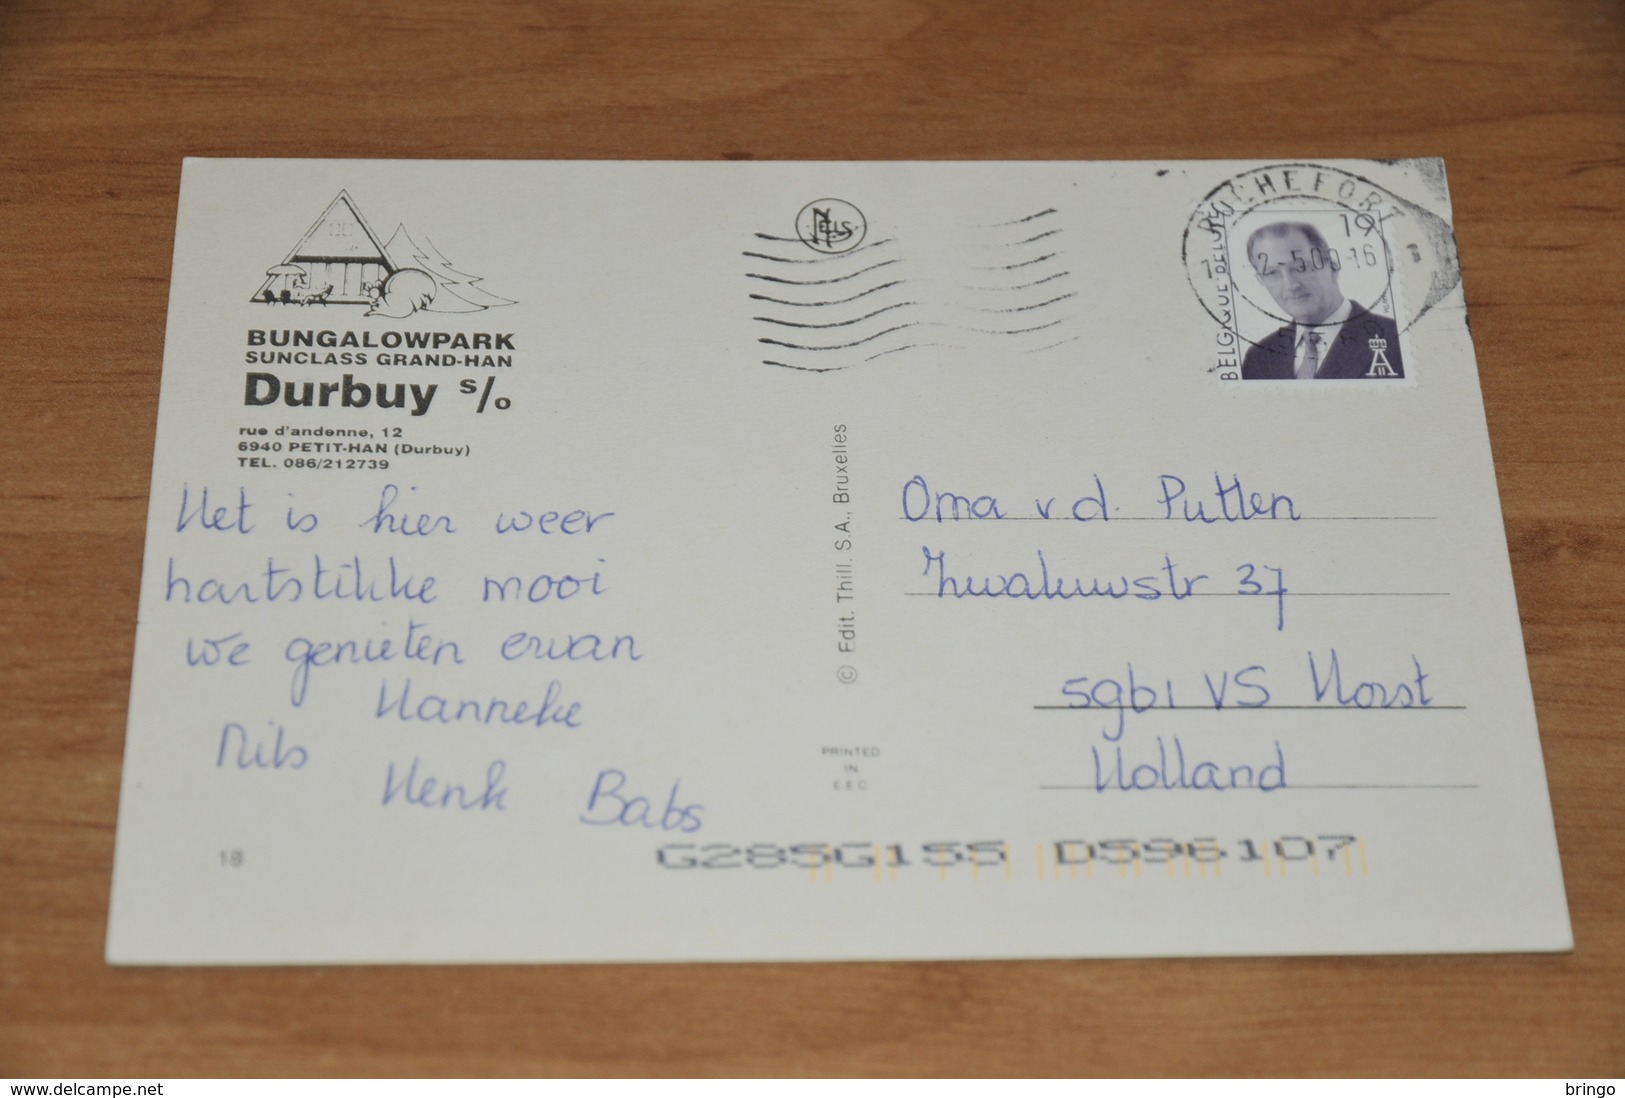 BUNGALOWPARK
SUNCLASS GRAND-HAN
Durbuy s/o
rue d'andenne, 12
6940 PETIT-HAN (Durbuy)
TEL. 086/212739
Het is hier weer
hartstikke mooi
we genieten ervan
Hanneke
Nils
Henk Babs
18
NELS
© Edit. Thill. S.A., Bruxelles
PRINTED
IN
EEC
ROCHEFORT
BELGIQUE BELGIË
19
Oma v.d. Putten
37
5961 VS Horst
Holland
G285G155 D596107
delcampe.net
bringo